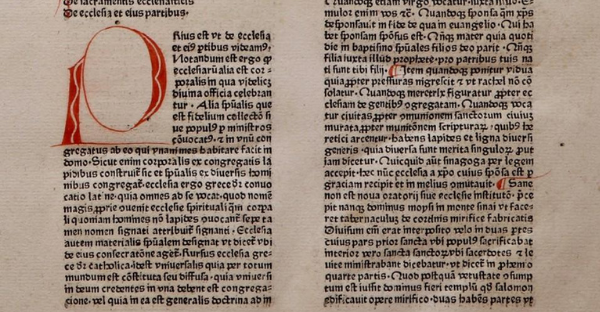 De sacramentis ecclesiasticis
De ecclesia et eius partibus·
Prius est vt de ecclesia
et eiꝰ ꝑtibus videamꝰ·
Notandum est ergo ꝙ
ecclesiarū alia est cor-
poralis in qua videlicꝫ
diuina officia celebran
tur · Alia spūalis que
est fidelium collectō si
ue populꝰ ꝑ ministros
cōuocatꝰ· ⁊ in vnū con
gregatus ab eo qui vnanimes habitare facit in
domo· Sicut enim corporalis ex congregatis la
pidibus construit᷑ sic et spūalis ex diuersis homi
nibus congregat᷑· ecclesia ergo grece dr̄ conuo
catio lat̄ ne· quia omnes ab se vocat· quod nomē
magis ꝓprie ouenit ecclesie spirituali qm̄ corpa
li quoniam homines nō lapides vocant᷑ sepe ta
men nomen signati attribuit᷑ signanti · Ecclesia
autem materialis spūalem designat vt dicet᷑ vbi
de eius consecratōne aget᷑· Rursus ecclesia gre-
ce dr̄ catholica idest vniuersalis quia per totum
mundum est cōstituta seu diffusa· quia vniuersi
in deum credentes in vna debent esse congrega-
tione· vel quia in ea est generalis doctrina ad in
mulot enim vos ⁊c̄· Quandoqꝫ sponsa qm̄ xp̄s
desponsauit in fide de qua in euangelio· Qui ha
bet sponsam spōsus est· Nūqꝫ mater quia quoti
die in baptismo spūales filios deo parit · Nūqꝫ
filia iuxta illud prophete· pro patribus tuis na
ti sunt tibi filij· Item quandoqꝫ ponitur vidua
quia ꝓpter pressuras nigrescit ⁊ vt rachel nō cō
solatur· Quandoqꝫ meretrix figuratur ꝓpter ec
clesiam de gentibꝰ ogregatam· Quandoqꝫ voca
tur ciuitas ꝓpter omunionem sanctorum ciuium
murata ꝓpter munitōnem scripturaꝝ · quibꝰ he
retici arcentur· habens lapides et ligna diuersi
generis· quia diuersa sunt merita singuloꝝ· put
iam dicetur· Nuicquid aūt sinagoga per legem
accepit· hoc nūc ecclesia a xp̄o cuius spōsa est p
graciam recipit et in melius omutauit· Sane
non est noua oratorij siue ecclesie institutō· p̄ce
pit nanqꝫ dominus moysi in monte sinai vt face-
ret tabernaculuꝫ de cortinis mirifice fabricatis
Diuisum em̄ erat interposito velo in duas ꝑtes
cuius pars prior sancta vbi populꝰ sacrificabat
interior vero sancta sanctoꝝ vbi sacerdotes ⁊ le
uite ministrabant dicebatur· vt dicetur in phemio
quarte partis · Quod postqꝫ vetustate osump
tum est iussit dominus fieri templū qd̄ salomon
edificauit opere mirifico· duas habēs partes vt